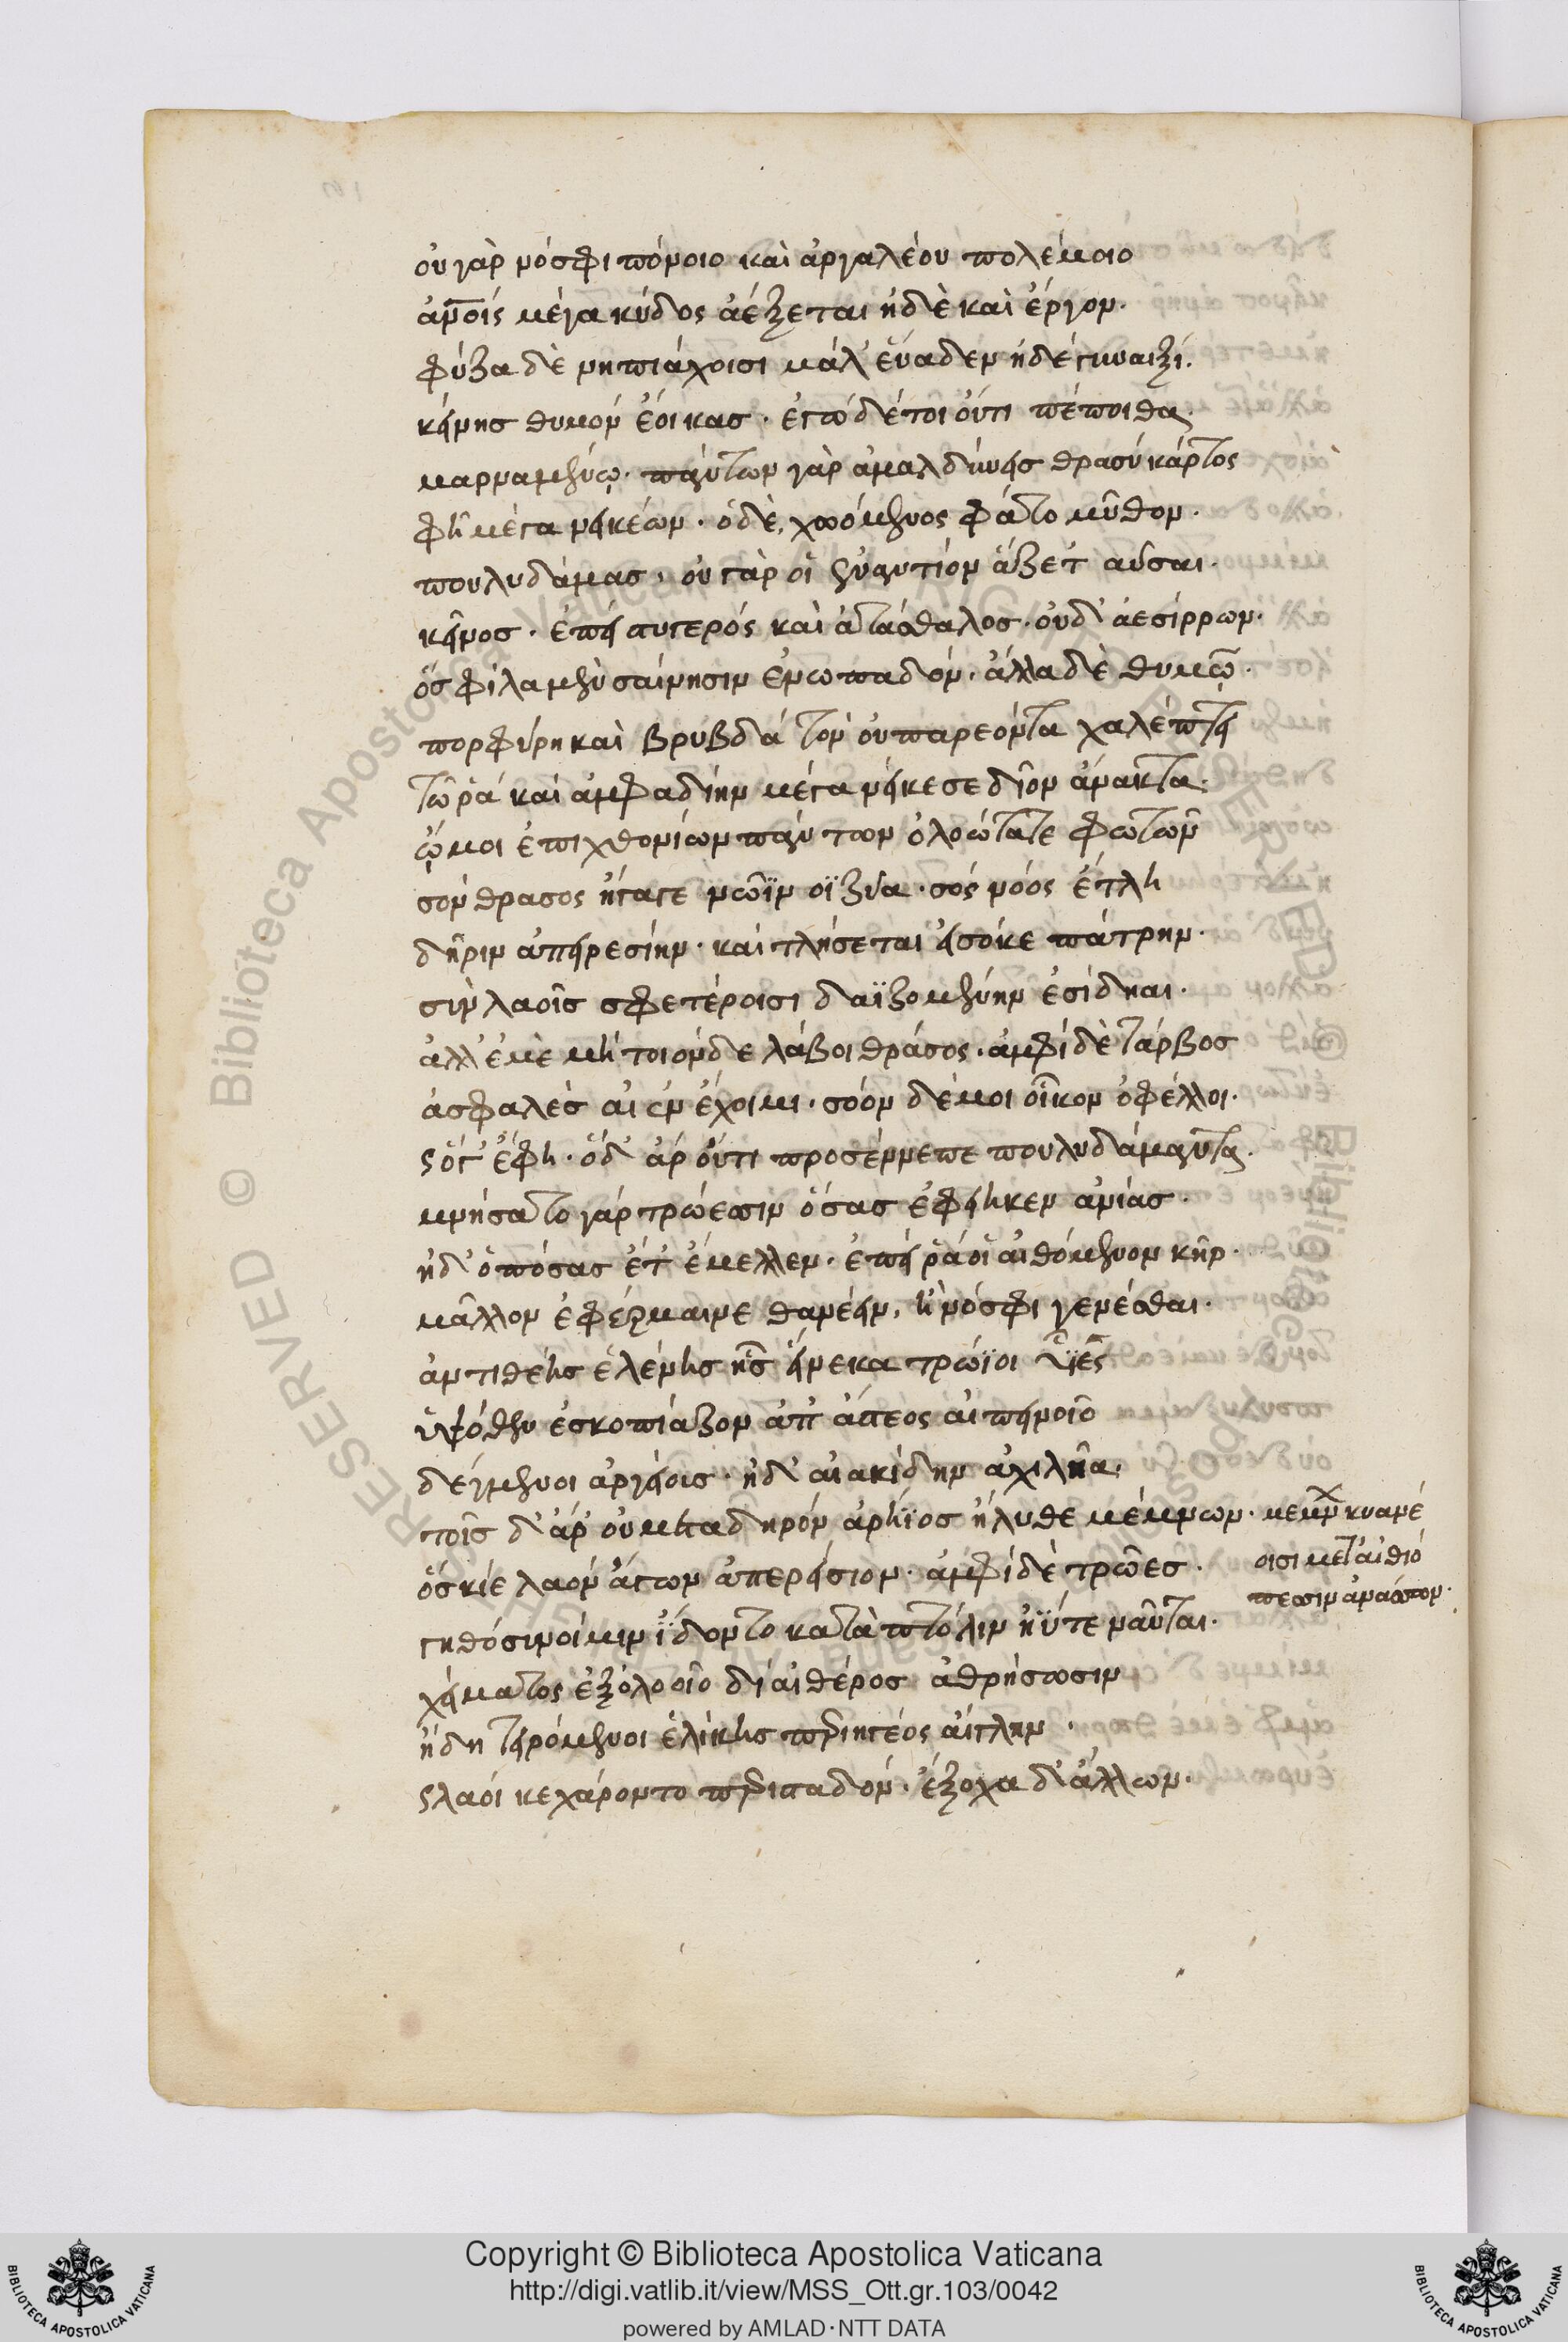 οὐ γὰρ νόσφι πόνοιο καὶ ἀργαλέου πολέμοιο
ἀνοῖς μέγα κύδος ἀέξεται ἠδὲ καὶ ἔργον.
φύζα δὲ νηπιάχοισι μάλ' εὔαδεν ἠδέ γυναιξί.
κείνης θυμὸν ἔοικας. ἐγὼ δέ τοι οὔτι πέποιθα.
μαρναμένῳ. πάντων γὰρ ἀμαλδύνεις θρασύ κάρτος
φῆ μέγα νεικέων. ὁ δὲ, χωόμενος φάτο μῦθον.
πουλυδάμας, οὐ γάρ οἱ ἐναντίον ἅζετ' αὖσαι.
κεῖνος. ἐπεὶ στυγερός καὶ ἀτάσθαλος. οὐδ' ἀεσίφρων.
ὅς φίλα μὲν σαίνησιν ἐνωπαδόν. ἄλλα δὲ θυμῷ.
πορφύρη καὶ βρυβδά τὸν οὐ παρεόντα χαλέπτει
τῶ ῥά καί ἀμφαδίην μέγα νείκεσε δῖον ἄνακτα.
ᾤμοι ἐπιχθονίων πάντων ὀλοώτατε φωτῶν
σόν θρασος ἤγαγε νῶϊν οϊζύα. σός νόος ἔτλη
δῆριν ἀπειρεσίην. καὶ τλήσεται εἰσόκε πάτρην.
σὺν λαοῖς σφετέροισι δαϊζομένην ἐσίδηαι.
ἀλλ' ἐμὲ μή τοιόνδε λάβοι θράσος. ἀμφὶ δὲ τάρβος
ἀσφαλὲς αἰὲν ἔχοιμι. σόον δέ μοι οἶκον ὀφέλλοι.
ὅγ' ἔφη. ὅδ' ἀρ οὔτι προσέννεπε πουλυδάμαντα.
μνήσατο γάρ τρώεσσιν ὅσας ἐφέηκεν ἀνίας.
ἠδ' ὁπόσας ἔτ' ἔμελλεν. ἐπεὶ ῥά οἱ αἰθόμενον κῆρ.
μᾶλλον ἐφέρμαινε θανέειν. ἢ νόσφι γενέσθαι.
ἀντιθέης ἑλένης ἧς εἵνεκα τρώϊοι υἷες
ὑψόθεν ἐσκοπίαζον ἀπ' ἄστεος αἰπεινοῖο
δέγμενοι ἀργείοις. ἠδ' αἰακίδην ἀχιλῆα.
τοῖς δ' ἄρ' οὐ μετὰ δηρόν ἀρήϊος ἤλυθε μέμνων. μέμν κυανέ
ὅς κίε λαόν ἄγων ἀπερείσιον. ἀμφὶ δὲ τρῶες. οισι μετ' αἰθιό
γηθόσυνοί μιν ἴδοντο κατὰ πτόλιν ἠΰτε ναῦται. πεσσιν ἀνάσσων.
χείματος ἐξ ὀλοοῖο δι' αἰθέρος ἀθρήσωσιν
ἤδη τειρόμενοι ἑλίκης περιηγέος αἴγλην.
λαοί κεχάροντο περισταδόν. ἔξοχα δ' ἄλλων.
Copyright © Biblioteca Apostolica Vaticana
http://digi.vatlib.it/view/MSS_Ott.gr.103/0042
powered by AMLAD·NTT DATA